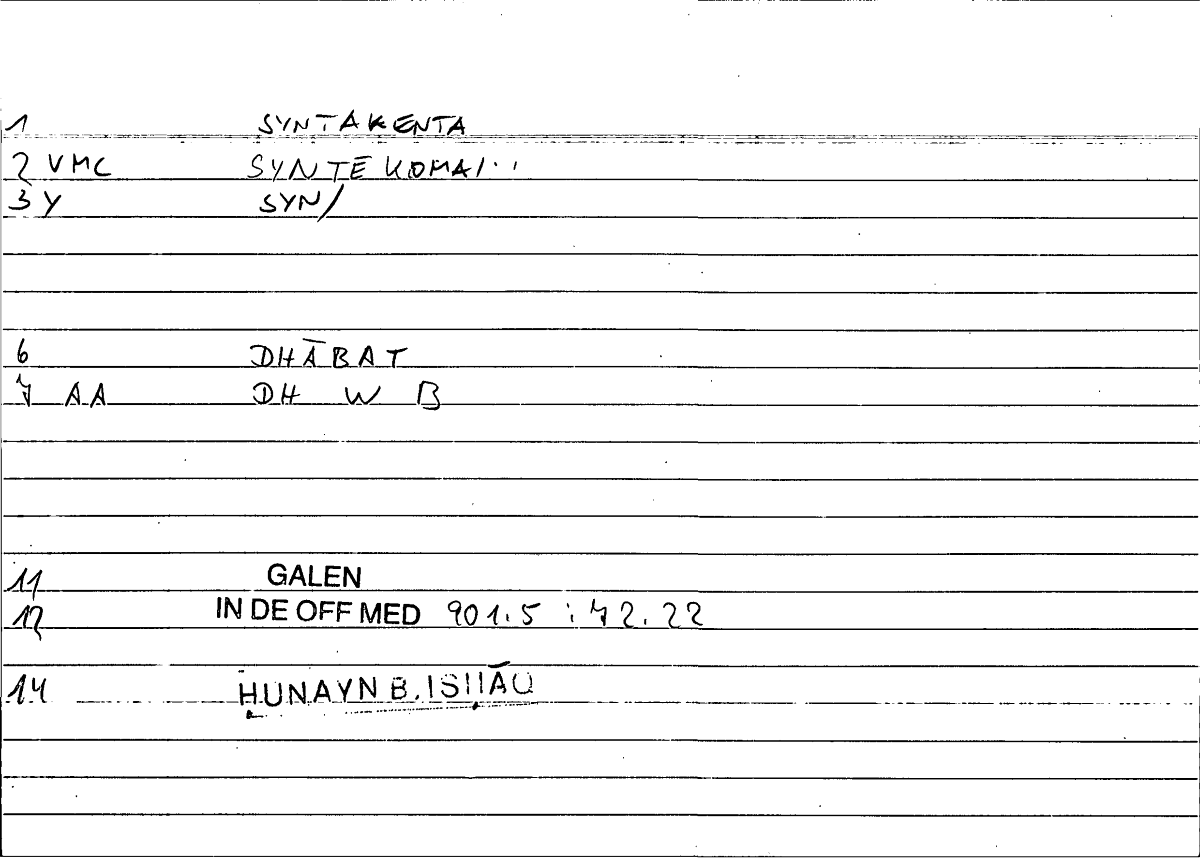 1 SYNTAKENTA
2 VMC SYNTEKOMAI..
3 Y SYN/
6 DHĀBAT
7 AA DH W B
11 GALEN
12 IN DE OFF MED 901.5 : 72.22
14 ḤUNAYN B. ISḤĀQ